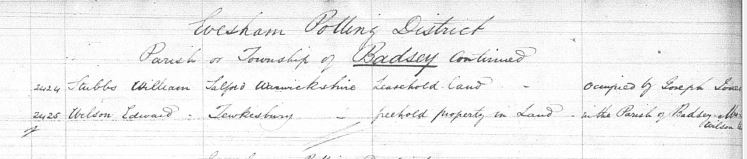 Evesham Polling District
Parish or Township of Badsey Continued
2424 Stubbs William Salford Warwickshire Leasehold land - Occupied by Joseph
2425 Wilson Edward - Tewkesbury - freehold property in Land - in the Parish of Badsey
Wilson